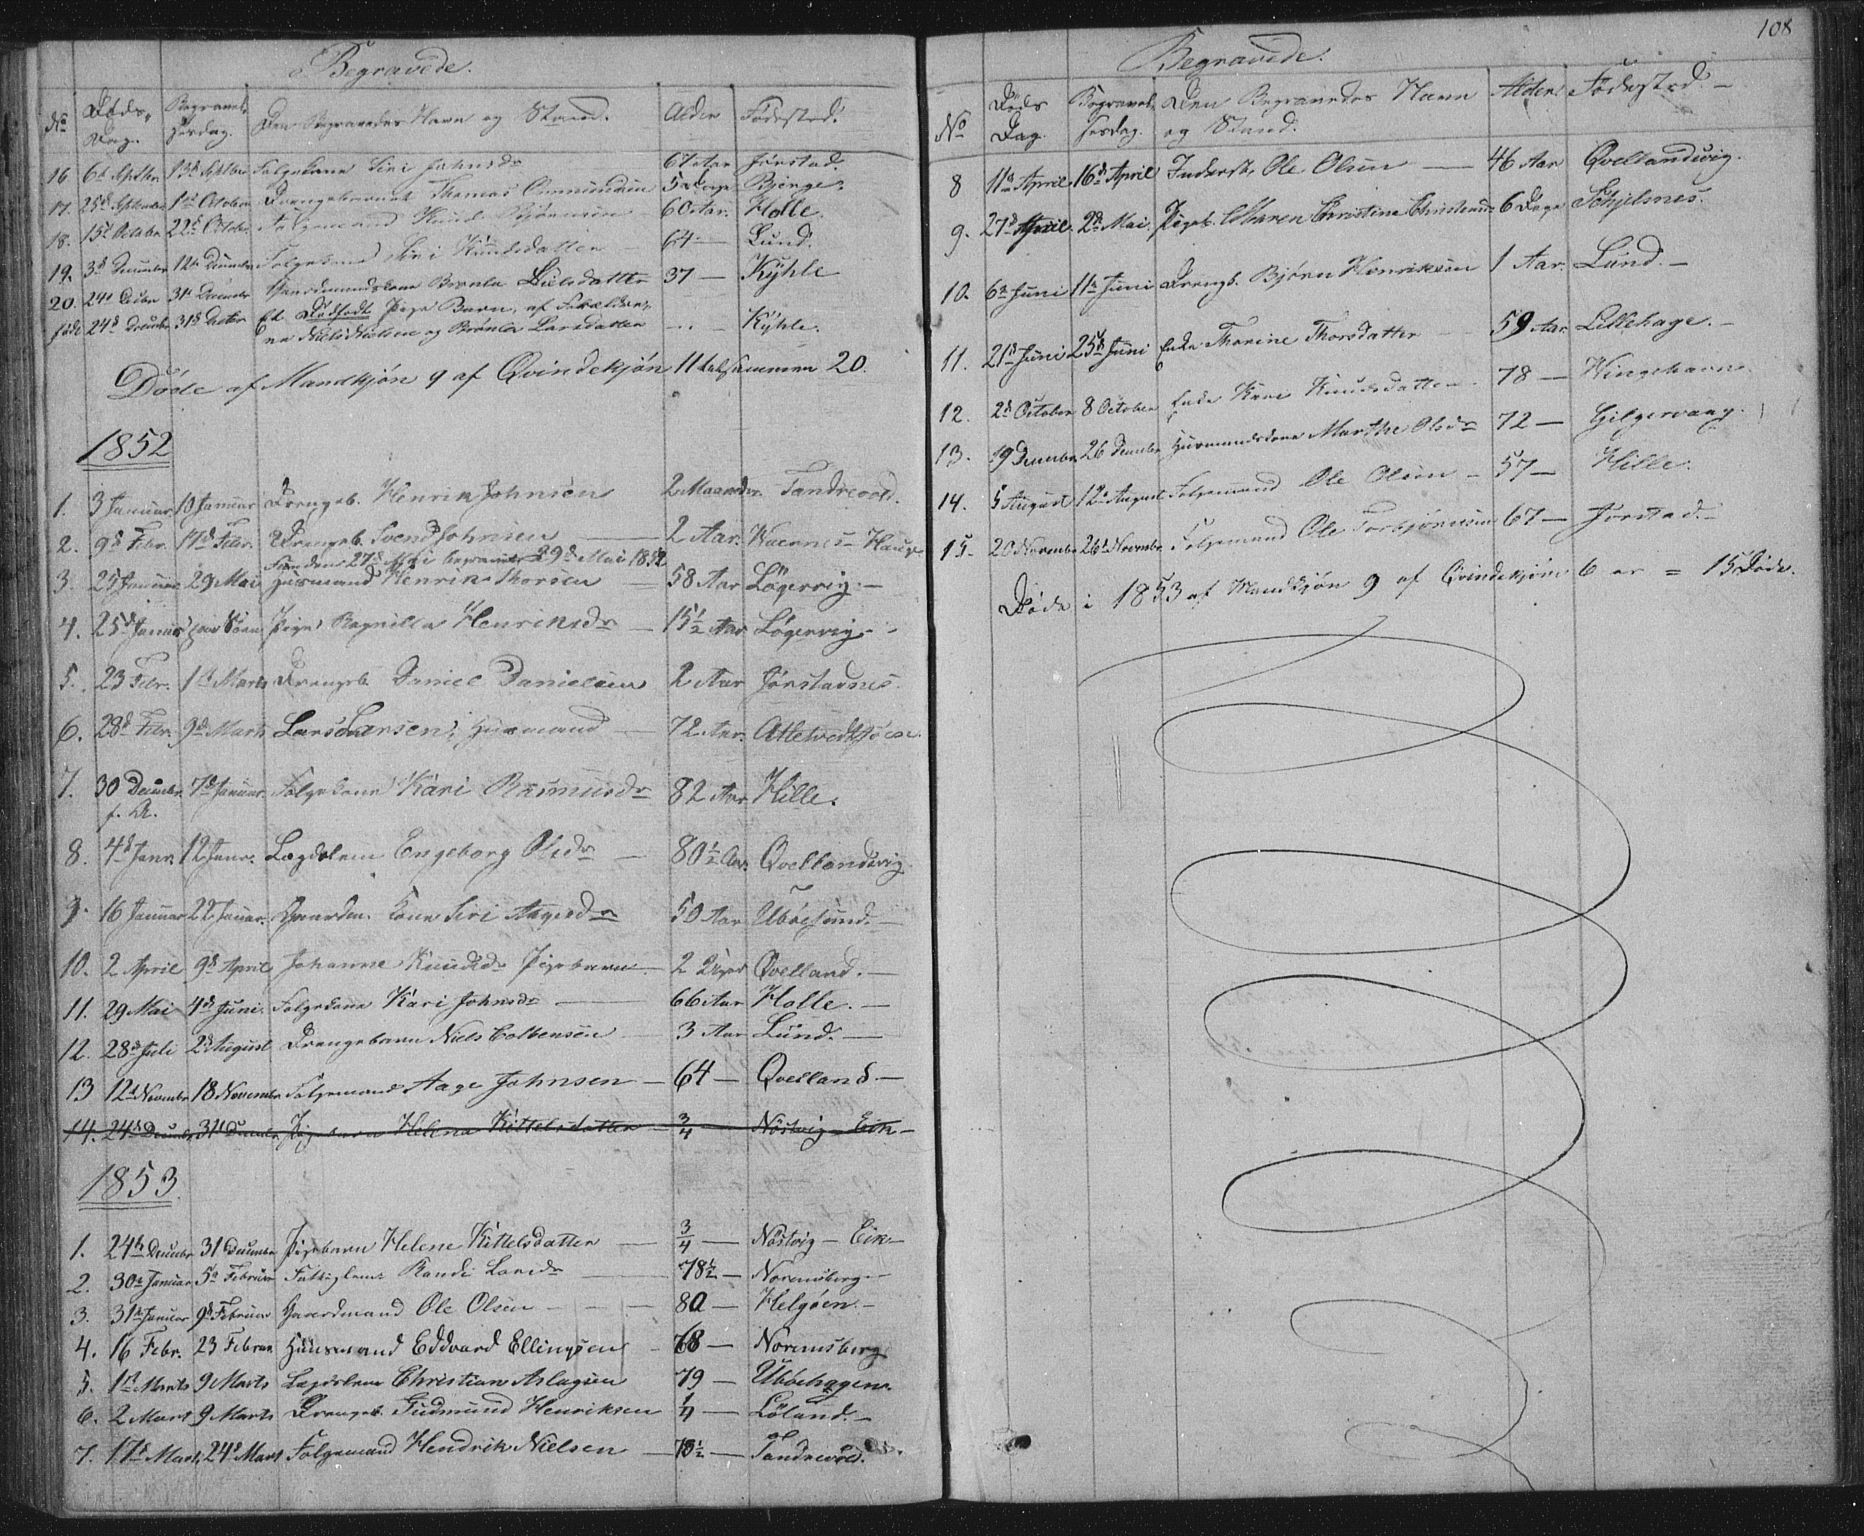 Begravede.
No Døds-Dag. Begravelsesdag. Den Begravedes Navn og Stand. Alder Fødested.
16 6t Septbr 13d Septbr Folgekone Siri Johnsdr 67 Aar Jørstad.
17. 25d Septbr 1st October Drengebarnet Thomas Gunnundsen 5 Dage Bjerge.
18. 15d October 22d October Folgemand Knud Bjørensen 60 Aar. Holle.
19. 3d December 12te December Folgekone Siri Knudsdatter 64 — Lund.
20. 24d Decbr 31d December Gaardmandskone Berthe Larsdatter 37 — Kÿhle
født 24d Decembr 31d Decbr Et Dødfødt Pige Barn, af Forældre-
ne Niels Nielsen og Berthe Larsdatter — Kÿhle.
Døde af Mandkjøn 9 af Qvindekjøn 11 talsammen 20.
1852
1. 3 Januar 10 Januar Drengeb. Henrik Johnsen 2 Maaneder Tandrevold.
2. 9d Febr. 17d Febr. Drengeb. Svend Johnsen 2 Aar. Waernes Hauge
Funden 27d Mai begravet 29d Mai 1852
3. 25 Januar 29 Mai Huusmand Henrik Thorsen 58 Aar Lögervig —
4. 25d Januar Pige Ragnilla Henriksdr 15½ Aar Lögervig
5. 23 Febr. 1d Marts Drengeb. Daniel Danielsen 2 Aar Jørstadnes.
6. 28d Febr. 9d Marts Lars Larsen, Huusmand 72 Aar.
7. 30 Decembr. 7d Januar. Folgekone Kari Rasmusdr 82 Aar Hille.
f. A.
8. 4d Janr. 12 Janr. Lægdslem Engeborg Olsdr 80½ Aar. Qvellandsvig
9. 16 Januar 22 Januar. Gaardm. Kone Siri Aagesdr 50 Aar Ubøesund.
10. 2 April 9d April Johanne Knudsdr Pigebarn 2 Uger Qvelland. —
11. 29 Mai 4d Juni. Folgekone Kari Johnsdr 66 Aar Holle. —
12. 28d Juli 2d August Drengebarn Niels Colbensen 3 Aar Lund. —
13 12d Novembr 18 Novembr Folgemand Aage Johnsen — 64 — Qvelland —
14. 24d Decembr 31d Decembr Pigebarn Helene Kittelsdatter ¾ Nöstvig — Eik —
1853.
1. 24de Decembr 31d Decembr Pigebarn Helene Kittelsdatter ¾ — Nöstvig — Eik —
2. 30d Januar 5d Februar Fattiglem Randi Larsdr 78½ — Noremsberg —
3. 31d Januar 9d Februar Gaardmand Ole Olsen 80 — Helgöen. —
4. 16 Febr. 23 Februar Huusmand Eddvard Ellingsen 68 — Noremsberg
5. 1st Marts 9 Marts Lægdslem Christian Aslagsen 79 — Ubøehagen.
6. 2 Mart 9 Marts Drengeb. Gudmund Henriksen ¼ — Löland. —
7. 17d Mart. 24d Mart Folgemand Hendrik Nielsen — 73½ — Tandrevold.
108
Begravede.
No Døds Dag. Begravelsesdag. Den Begravedes Navn og Stand. Alder. Fødested. —
8 11te April 16d April Inderst, Ole Olsen — 46 Aar Qvellandsvig.
9. 27d April. 2d Mai. Pigeb. Maren Christine Christensdr 6 Dage Schjelsnes.
10. 6te Juni 11te Juni Drengb. Bjørn Henriksen 1 Aar. Lund. —
11. 21d Juni 25d Juni Enke Thorine Thorsdatter 59 Aar. Lillehage. —
12. 2d October 8 October Enke Kare Knudsdatter 78 — Wingehavn
13. 19 December 26 December Huusmandskone Marthe Olsdr 72 — Gilgervaag.
14. 5 August 12d August Folgemand Ole Olsen — 57 — Hille.
15. 20 Novembr 26d Novembr Folgemand Ole Torbjörnsen 67 — Jørstad. —
Døde i 1853 af Mandkjøn 9 af Qvindekjøn 6 er = 15 Døde.